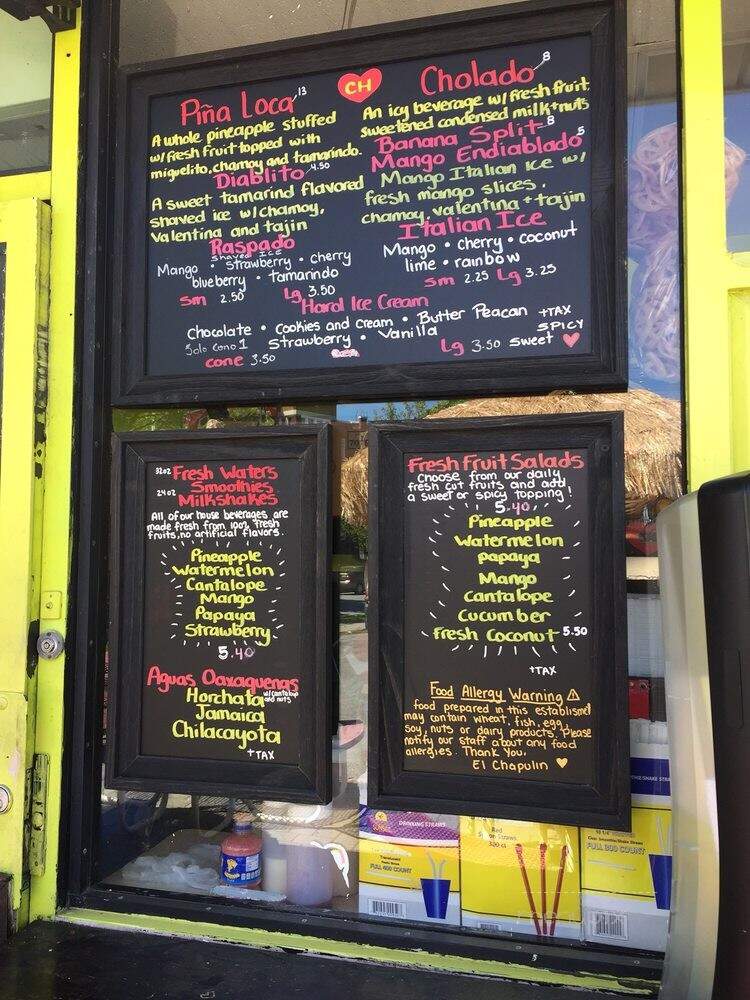 Piña Loca 13
A whole pineapple stuffed
w/ fresh fruit topped with
miguelito, chamoy and tamarindo.
Diablito 4.50
A sweet tamarind flavored
shaved ice w/ chamoy,
valentina and tajin
Raspado
Shaved Ice
Mango • Strawberry • cherry
blueberry • tamarindo
Sm 2.50 Lg 3.50
CH
Cholado 8
An icy beverage w/ fresh fruit,
sweetened condensed milk + nuts
Banana Split 8
Mango Endiablado 5
Mango Italian Ice w/
fresh mango slices,
chamoy, valentina + tajin
Italian Ice
Mango • cherry • coconut
lime • rainbow
Sm 2.25 Lg 3.25
Hard Ice Cream
Chocolate • Cookies and Cream • Butter Peacan
Solo Cono 1 Strawberry • Vanilla
cone 3.50 Lg 3.50
+TAX
SPICY
Sweet
32oz Fresh Waters
Smoothies
24oz Milkshakes
All of our house beverages are
made fresh from 100% fresh
fruits, no artificial flavors.
Pineapple
Watermelon
Cantalope
Mango
Papaya
Strawberry
5.40
Aguas Oaxaquenas
Horchata w/ cantaloup and nuts
Jamaica
Chilacayota
+TAX
Fresh Fruit Salads
Choose from our daily
fresh cut fruits and add
a sweet or spicy topping!
5.40
Pineapple
Watermelon
papaya
Mango
Cantalope
Cucumber
Fresh Coconut 5.50
+TAX
Food Allergy Warning ⚠
food prepared in this establismet
may contain wheat, fish, egg,
soy, nuts or dairy products. Please
notify our staff about any food
allergies. Thank You.
El Chapulin
DRINKING STRAWS
FULL 400 COUNT
Red
300 ct
FULL 300 COUNT